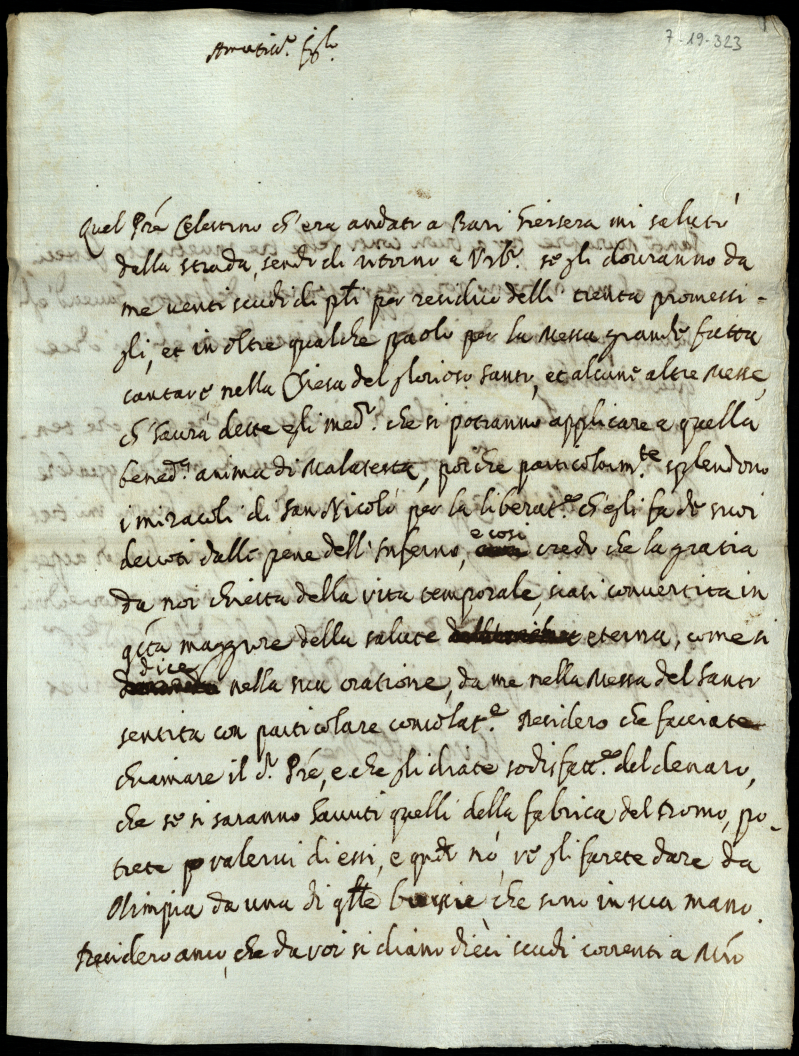 7-19-323
Amatis.e figlo
Quel Prê Celestino ch'era andato a Bari hiersera mi salutò
dalla strada, sendo di ritorno a Urb.o se gli douranno da
me uenti scudi di ptī per residuo delli trenta promessi-
gli, et in oltre qualche paolo per la Messa grande fatta
cantare nella Chiesa del glorioso Santo, et alcune altre Messe,
ch'haurà dette egli med.o che si potranno applicare a quella
bened.a anima di Malatesta, poiche particolarm.te splendono
i miracoli di San Nicolò per la liberat.e ch'egli fa de suoi
deuoti dalle pene dell'Inferno, e così credo che la gratia
da noi chiesta della vita temporale, siasi conuertita in
q̃lla maggiore della salute eterna, come si
dice nella sua oratione, da me nella Messa del Santo
sentita con particolare consolat.e Desidero che facciate
chiamare il d.o Prê, e che gli diate sodisfatt.e del denaro,
che se si saranno hauuti quelli della fabrica del Duomo, po-
trete ualerui di essi, e qñdo nò, ve gli farete dare da
Olimpia da una di q̃lle borscie, che sono in sua mano.
Desidero anco, che da voi si diano dieci scudi correnti a